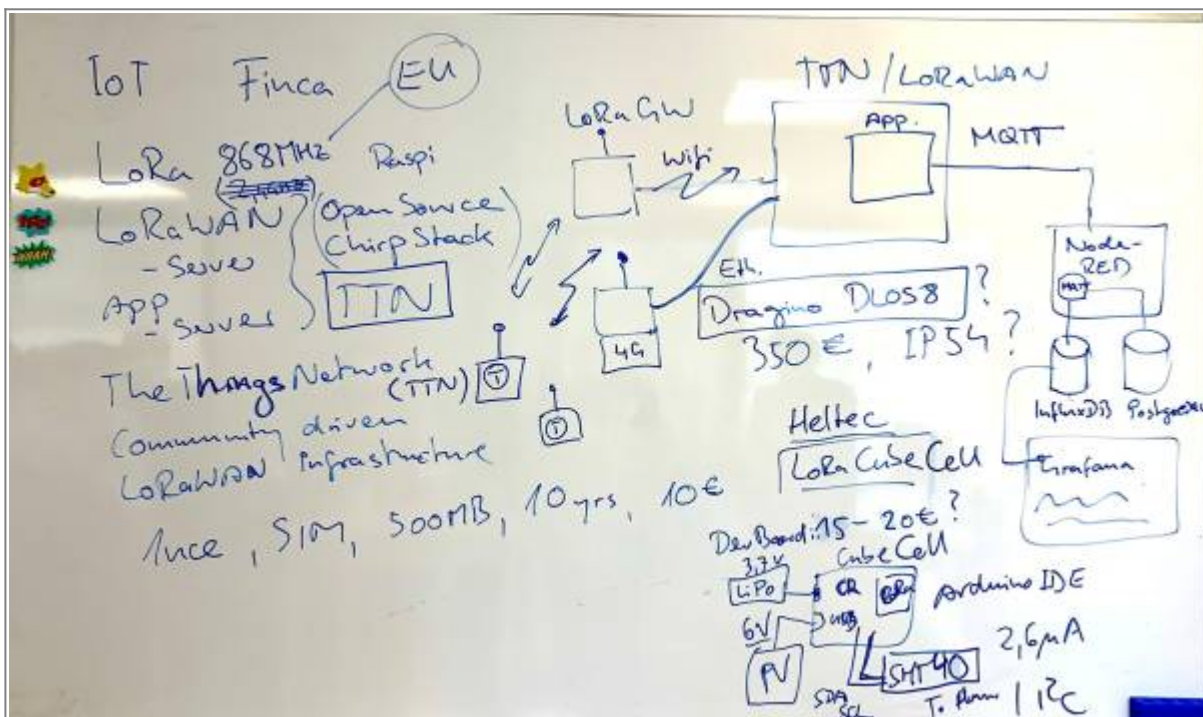 IoT Finca EU
LoRa 868MHz Raspi
LoRaWAN
- Server
App
- Server
(Open Source
ChirpStack)
TTN
The Things Network
(TTN)
Community driven
LoRaWAN infrastructure
1nce, SIM, 500MB, 10yrs, 10€
T
T
LoRa GW
Wifi
4G
Eth.
TTN/LoRaWAN
App.
MQTT
Dragino DLOS8 ?
350€, IP54?
Node-
RED
MQTT
InfluxDB
Grafana
Heltec
LoRa CubeCell
Dev Board: 15-20€?
CubeCell
3,7V
LiPo
6V
PV
USB
LoRa
Arduino IDE
SHT40
2,6µA
SDA
SCL
I²C